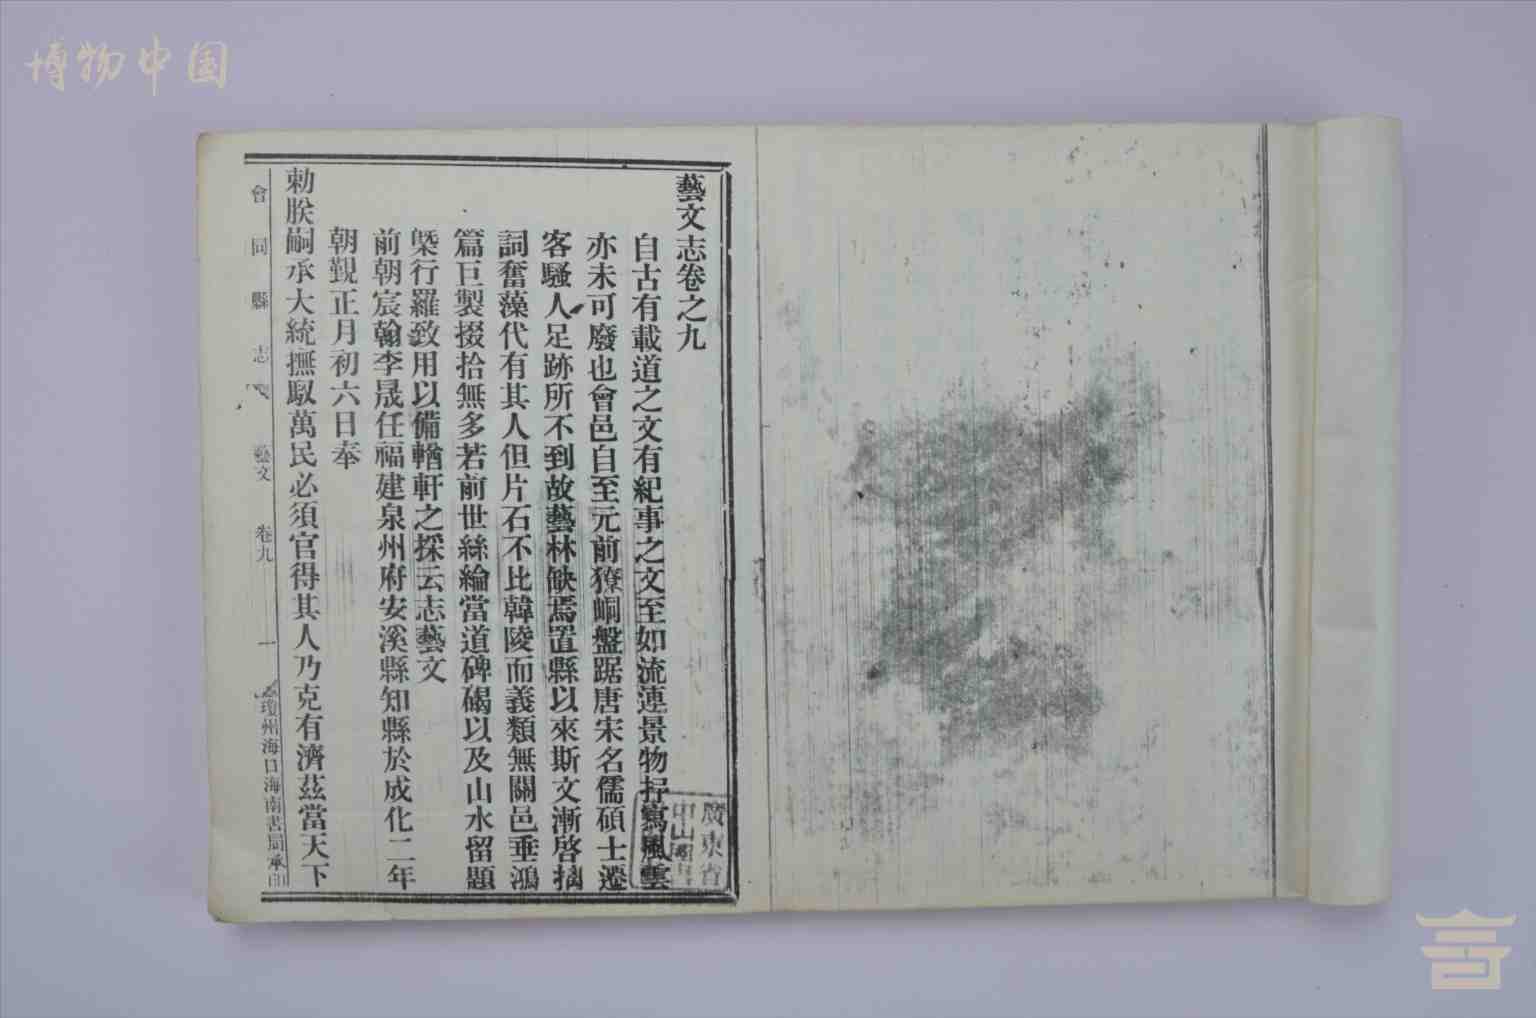 博物中国
藝文志卷之九
自古有載道之文有紀事之文至如流連景物抒寫風雲
亦未可廢也會邑自至元前獠峒盤踞唐宋名儒碩士遷
客騷人足跡所不到故藝林缺焉置縣以來斯文漸啓摛
詞奮藻代有其人但片石不比韓陵而義類無關邑乘鴻
篇巨製掇拾無多若前世絲綸當道碑碣以及山水留題
槩行羅致用以備輶軒之採云志藝文
前朝宸翰李晟任福建泉州府安溪縣知縣於成化二年
朝覲正月初六日奉
勅朕嗣承大統撫馭萬民必須官得其人乃克有濟茲當天下
會同縣志 藝文 卷九 一 瓊州海口海南書局承印
廣東省
中山圖書